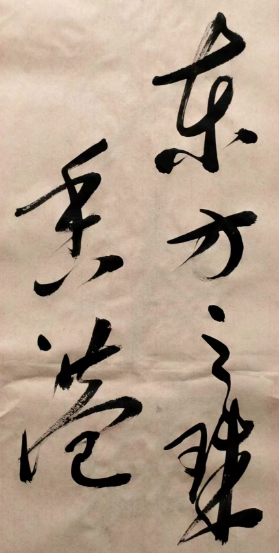 东方之珠
香港